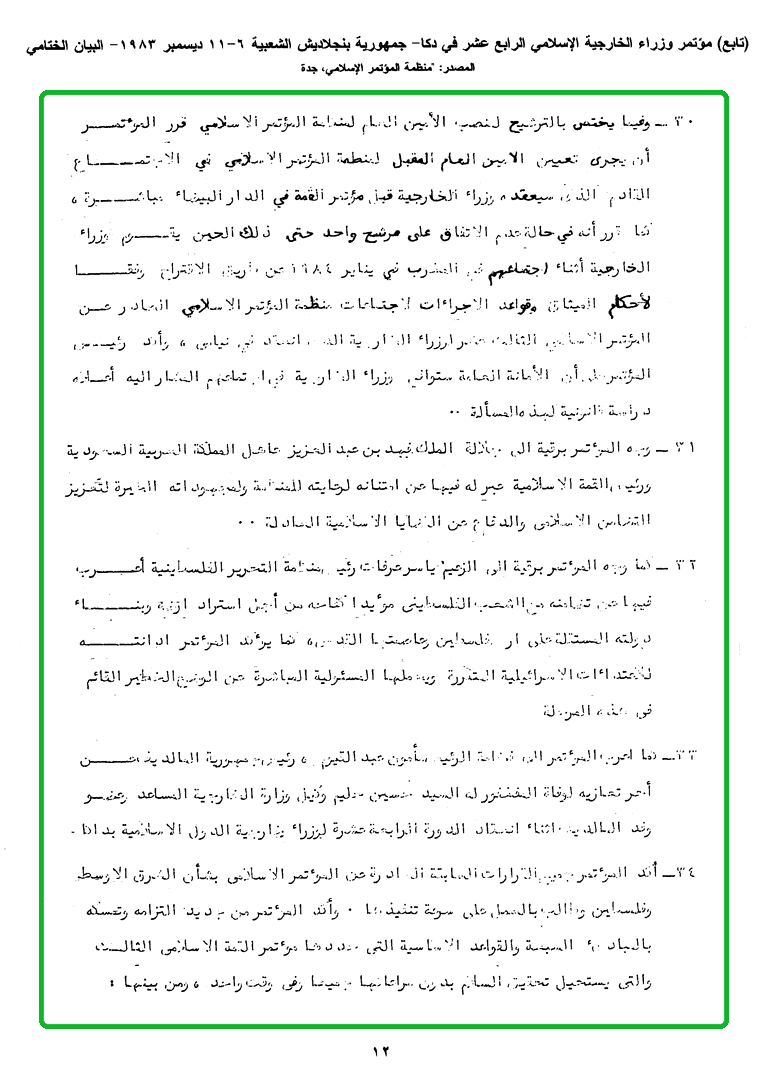 (تابع) مؤتمر وزراء الخارجية الإسلامي الرابع عشر في دكا- جمهورية بنجلاديش الشعبية ٦-١١ ديسمبر ١٩٨٣- البيان الختامي
المصدر: "منظمة المؤتمر الإسلامي، جدة
٣٠ ــ وفيما يختص بالترشيح لمنصب الأمين العام لمنظمة المؤتمر الاسلامي قرر المؤتمـــــر
أن يجرى تعيين الامين العام المقبل لمنظمة المؤتمر الاسلامي في الاجتمـــــاع
القادم الذى سيعقده وزراء الخارجية قبل مؤتمر القمة في الدار البيضاء مباشـــرة ،
كما قرر أنه في حالة عدم الاتفاق على مرشح واحد حتى ذلك الحين يقـــوم وزراء
الخارجية أثناء اجتماعهم في المغرب في يناير ١٩٨٤ عن طريق الاقتراع وفقـــا
لأحكام الميثاق وقواعد الاجراءات لاجتماعات منظمة المؤتمر الاسلامي الصادر عـــن
المؤتمر الاسلامي الثالث عشر لوزراء الخارجية الذى انعقد في نيامى ، وأكد رئيـــس
المؤتمر على أن الأمانة العامة ستوافي وزراء الخارجية في اجتماعهم المشار اليه أعـــلاه
دراسة قانونية لهذه المسألة ٠٠
٣١ ــ وجه المؤتمر برقية الى جلالة الملك فهد بن عبد العزيز عاهل المملكة العربية السعودية
ورئيس القمة الاسلامية عبر له فيها عن امتنانه لرعايته للمنظمة ولمجهوداته الخيرة لتعزيز
التضامن الاسلامى والدفاع عن القضايا الاسلامية العادلة ٠٠
٣٢ ــ كما وجه المؤتمر برقية الى الزعيم ياسر عرفات رئيس منظمة التحرير الفلسطينية أعـــرب
فيها عن تضامنه مع الشعب الفلسطينى مؤيدا كفاحه من أجل استرداد ارضه وبنـــاء
دولته المستقلة على ارض فلسطين وعاصمتها القدس ، كما يؤكد المؤتمر ادانتـــه
للاعتداءات الاسرائيلية المتكررة ويحملها المسئولية المباشرة عن الوضع الخطير القائم
فى هذه المرحلة
٣٣ــ كما اعرب المؤتمر الى فخامة الرئيس مأمون عبد القيوم ، رئيس جمهورية المالديف عـــن
أحر تعازيه لوفاة المغفور له السيد حسين سليم وكيل وزارة الخارجية المساعد وعضـــو
وفد المالديف اثناء انعقاد الدورة الرابعة عشرة لوزراء خارجية الدول الاسلامية بدكا ٠
٣٤ــ أكد المؤتمر جميع القرارات السابقة الصادرة عن المؤتمر الاسلامى بشأن الشرق الاوسط
وفلسطين وطالب بالعمل على سرعة تنفيذها ٠ وأكد المؤتمر من جديد التزامه وتمسكه
بالمبادئ السبعة والقواعد الاساسية التى حددها مؤتمر القمة الاسلامى الثالـــث
والتى يستحيل تحقيق السلام بدون مراعاتها جميعا وفى وقت واحد ، ومن بينها :
١٢